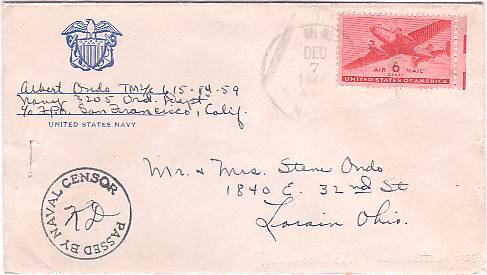 Albert Ondo TM2/c 615-84-59
Navy 3205 Ord. Dept
c/o F.P.O. San Francisco, Calif.
UNITED STATES NAVY
DEC
7
6
CENTS
AIR MAIL
UNITED STATES OF AMERICA
Mr. & Mrs. Steve Ondo
1840 E. 32nd St.
Lorain Ohio.
PASSED BY NAVAL CENSOR